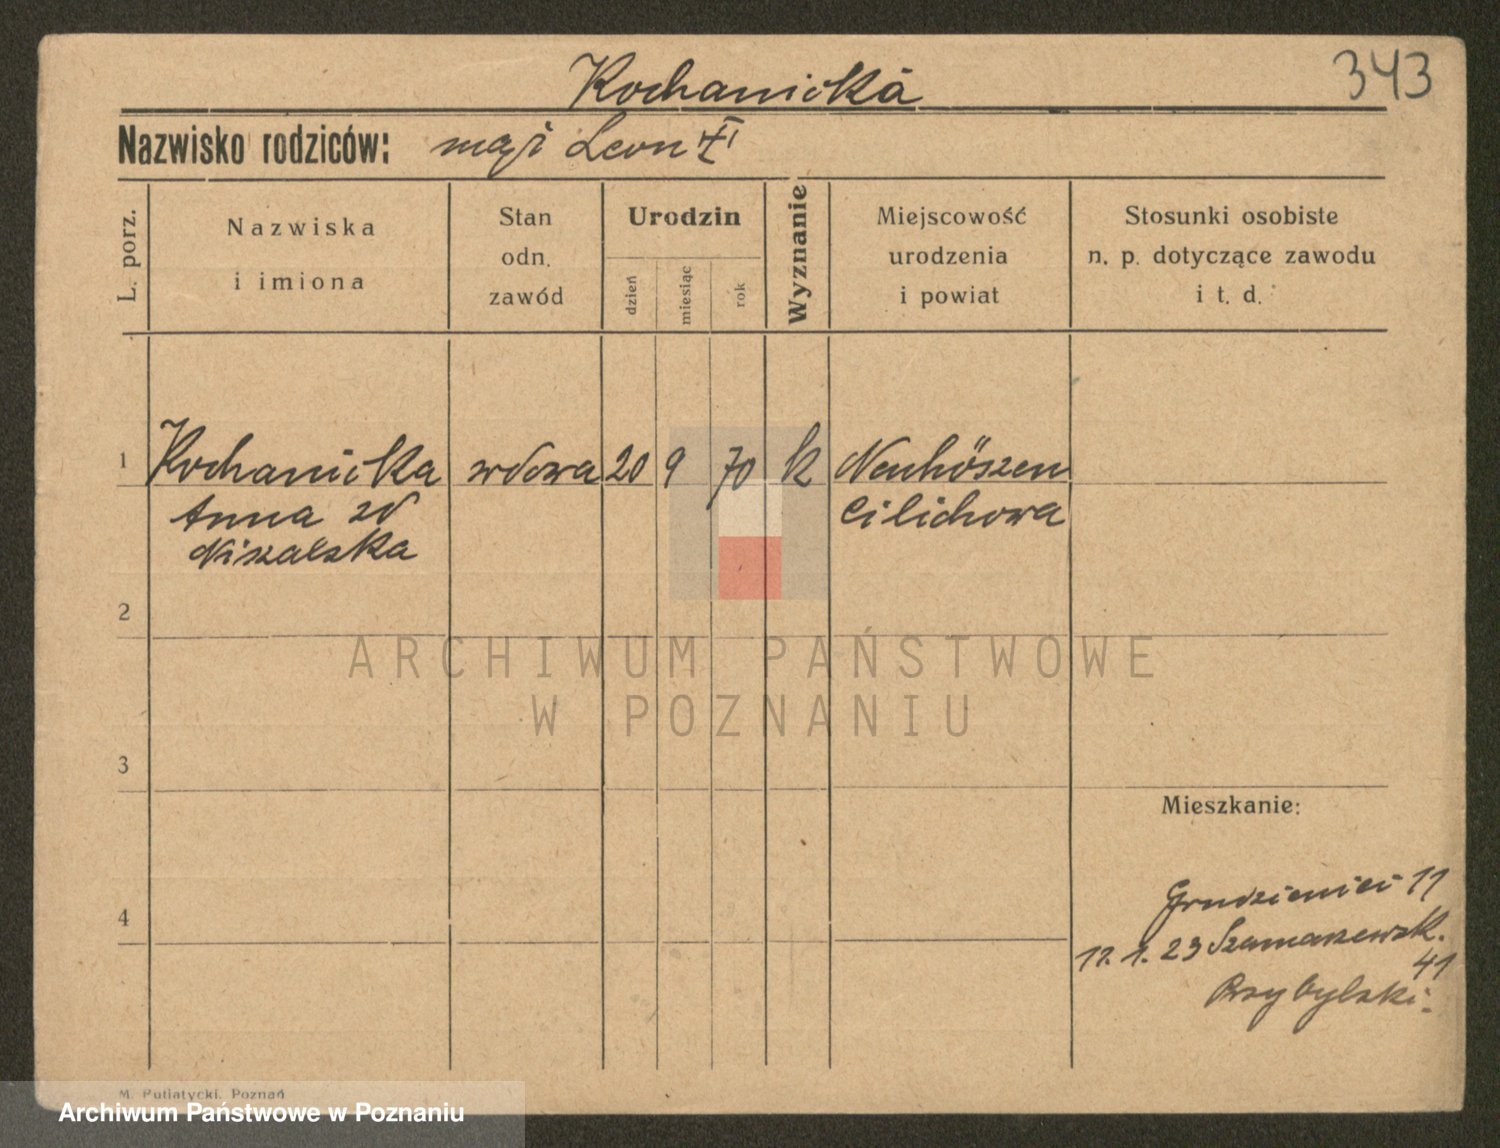 343
Kochanicka
Nazwisko rodziców: mąż Leon
L. porz.
Nazwiska
i imiona
Stan
odn.
zawód
Urodzin
dzień
miesiąc
rok
Wyznanie
Miejscowość
urodzenia
i powiat
Stosunki osobiste
n. p. dotyczące zawodu
i t. d.
1 Kochanicka wdowa 20 9 70 k Neuhöszen
Anna zd Cilichowa
2
ARCHIWUM PAŃSTWOWE
W POZNANIU
3
Mieszkanie:
Grudzieniec 11
4
17. 1. 23 Szamarzewsk.
41
Przybylski
M. Putiatycki, Poznań
Archiwum Państwowe w Poznaniu